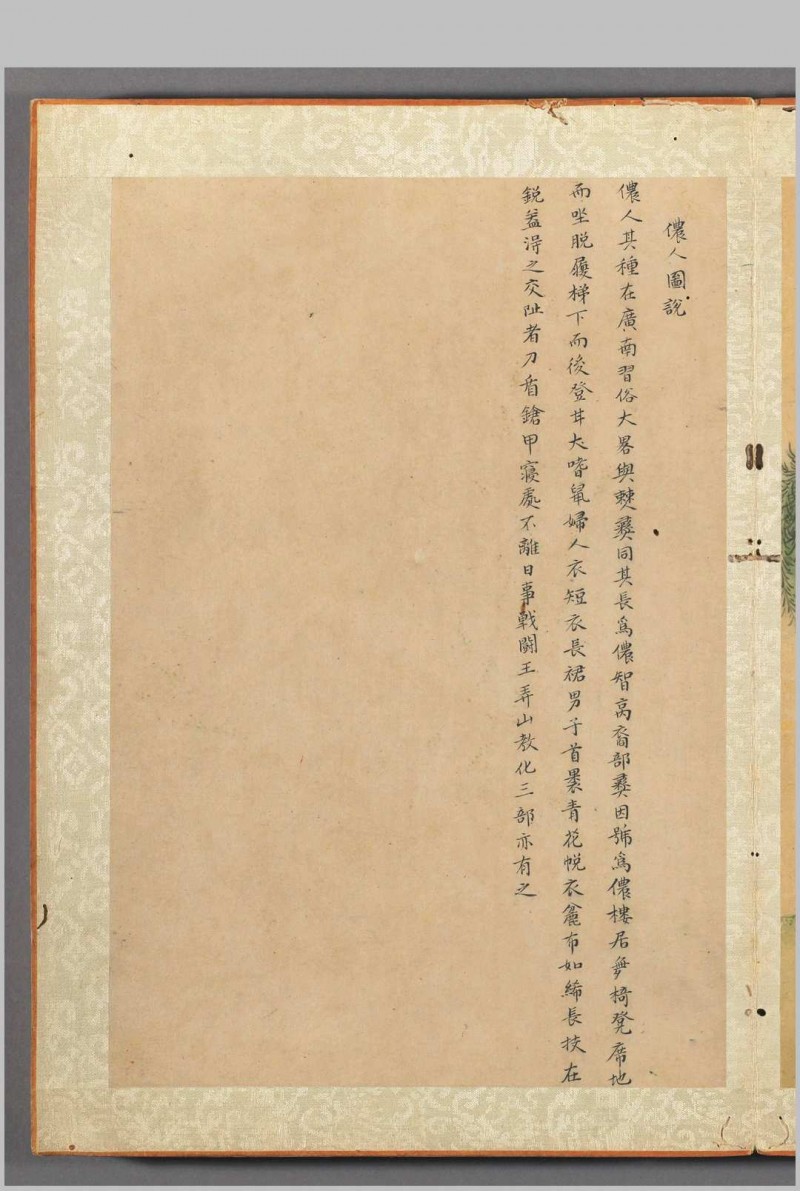 儂人圖說
儂人其種在廣南習俗大畧與僰彝同其長爲儂智高裔部彝因號爲儂樓居無椅凳席地
而坐脱履梯下而後登甘犬嗜鼠婦人衣短衣長裙男子首裹青花帨衣麄布如絺長技在
鋭盖得之交阯者刀盾鎗甲寢處不離日事戰鬭王弄山教化三部亦有之